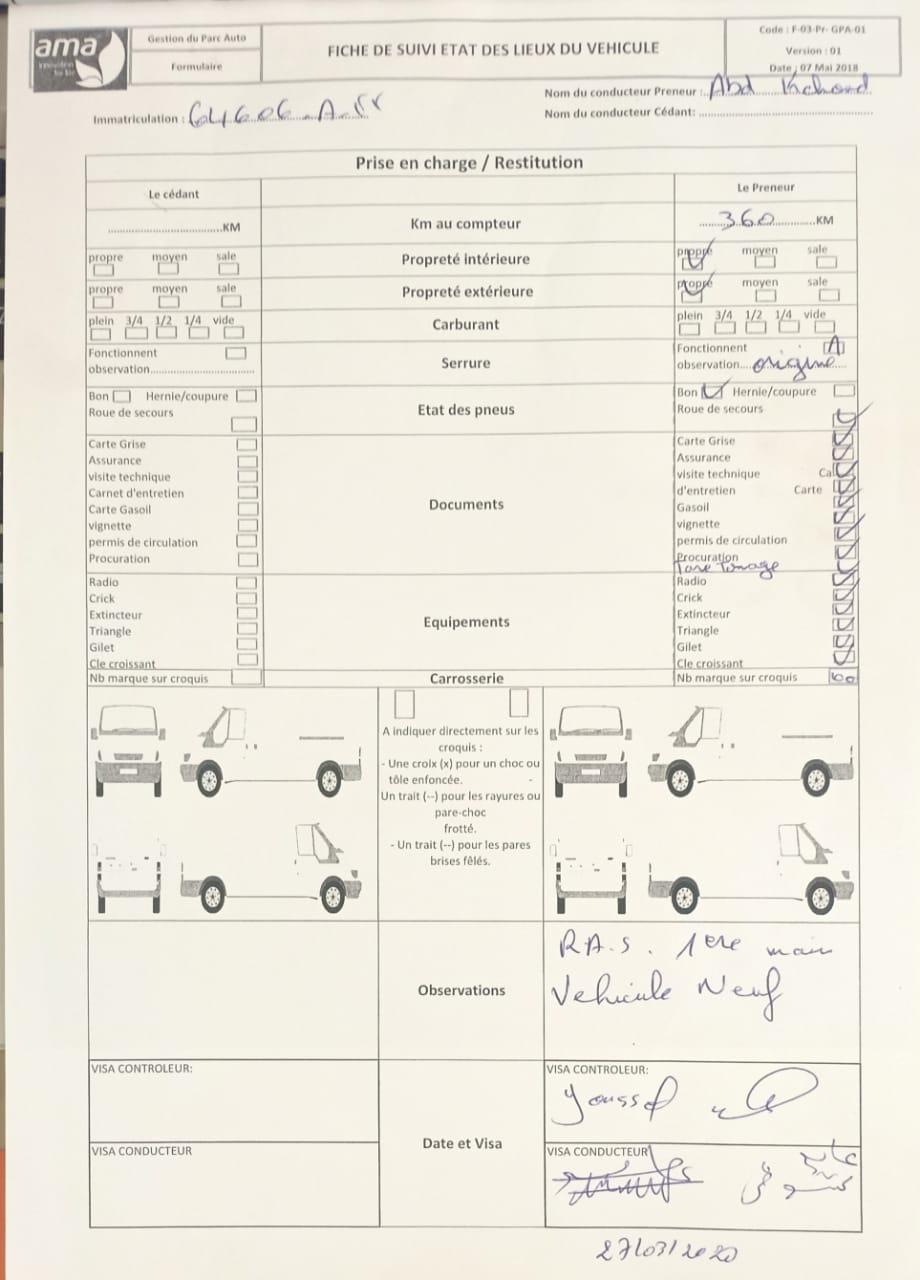 ama
Gestion du Parc Auto
Formulaire
FICHE DE SUIVI ETAT DES LIEUX DU VEHICULE
Code : F-03-Pr- GPA-01
Version : 01
Date : 07 Mai 2018
Nom du conducteur Preneur : Abd
Nom du conducteur Cédant: ........................
Immatriculation : 64606-A-
Prise en charge / Restitution
Le cédant Le Preneur
........................KM Km au compteur 360 KM
propre moyen sale Propreté intérieure propre moyen sale
propre moyen sale Propreté extérieure propre moyen sale
plein 3/4 1/2 1/4 vide Carburant plein 3/4 1/2 1/4 vide
Fonctionnent Serrure Fonctionnent
observation........................ observation.... origine
Bon Hernie/coupure Etat des pneus Bon Hernie/coupure
Roue de secours Roue de secours
Documents
Carte Grise Carte Grise
Assurance Assurance
visite technique visite technique
Carnet d'entretien d'entretien Carte
Carte Gasoil Gasoil
vignette vignette
permis de circulation permis de circulation
Procuration Procuration
Equipements
Radio Radio
Crick Crick
Extincteur Extincteur
Triangle Triangle
Gilet Gilet
Cle croissant Cle croissant
Nb marque sur croquis Carrosserie Nb marque sur croquis
A indiquer directement sur les
croquis :
- Une croix (x) pour un choc ou
tôle enfoncée. -
Un trait (--) pour les rayures ou
pare-choc
frotté.
- Un trait (--) pour les pares
brises fêlés.
Observations
R.A.S. 1ere main
Vehicule Neuf
VISA CONTROLEUR: VISA CONTROLEUR:
Youssef
Date et Visa
VISA CONDUCTEUR VISA CONDUCTEUR
27/03/2020